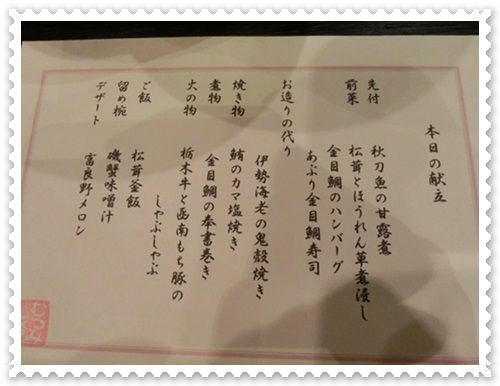 本日の献立
先付 秋刀魚の甘露煮
前菜 松茸とほうれん草煮浸し
金目鯛のハンバーグ
あぶり金目鯛寿司
お造りの代り
伊勢海老の鬼殻焼き
焼き物 鮪のカマ塩焼き
煮物 金目鯛の奉書巻き
火の物 栃木牛と函南もち豚の
しゃぶしゃぶ
ご飯 松茸釜飯
留め椀 磯蟹味噌汁
デザート 富良野メロン